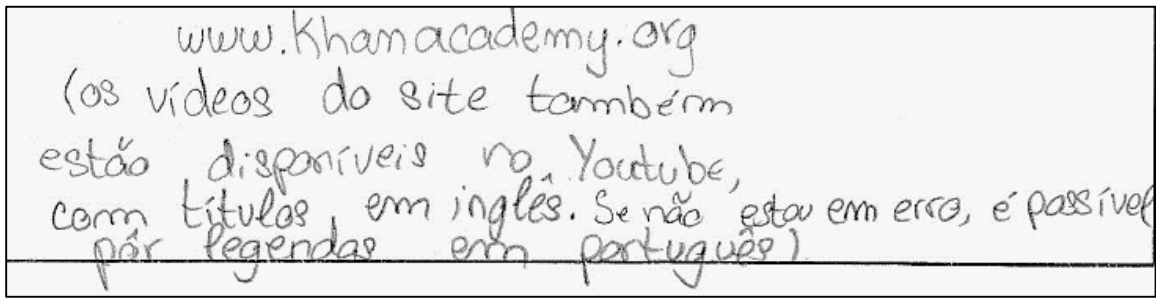 www.Khanacademy.org
(os vídeos do site também
estão disponíveis no Youtube,
com títulos, em inglês. Se não estou em erro, é possível
pôr legendas em português)